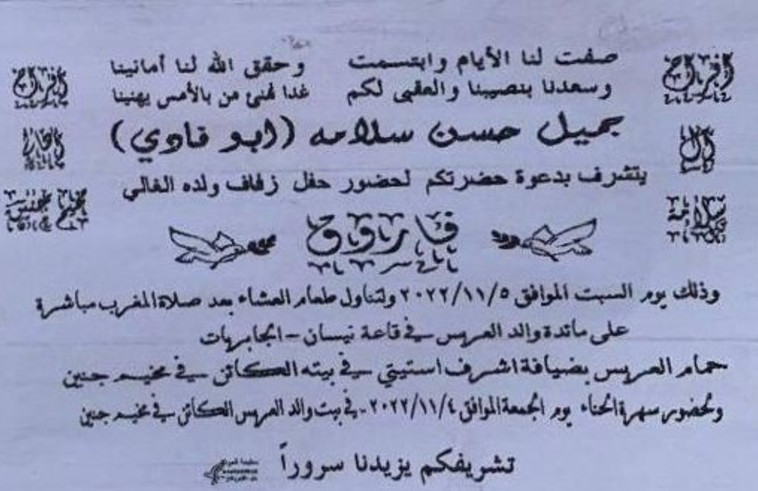 افراح
آل
سلامة
افراح
مخيم جنين
صفت لنا الأيام وابتسمت وحقق الله لنا أمانينا
وسعدنا بنصيبنا والعقبى لكم غدا نهني من بالأمس يهنينا
جميل حسن سلامه (ابو فادي)
يتشرف بدعوة حضرتكم لحضور حفل زفاف ولده الغالي
فاروق
وذلك يوم السبت الموافق ٢٠٢٢/١١/٥ ولتناول طعام العشاء بعد صلاة المغرب مباشرة
على مائدة والد العريس في قاعة نيسان - الجابريات
حمام العريس بضيافة اشرف استيتي في بيته الكائن في مخيم جنين
ولحضور سهرة الحناء يوم الجمعة الموافق ٢٠٢٢/١١/٤ - في بيت والد العريس الكائن في مخيم جنين
تشريفكم يزيدنا سروراً